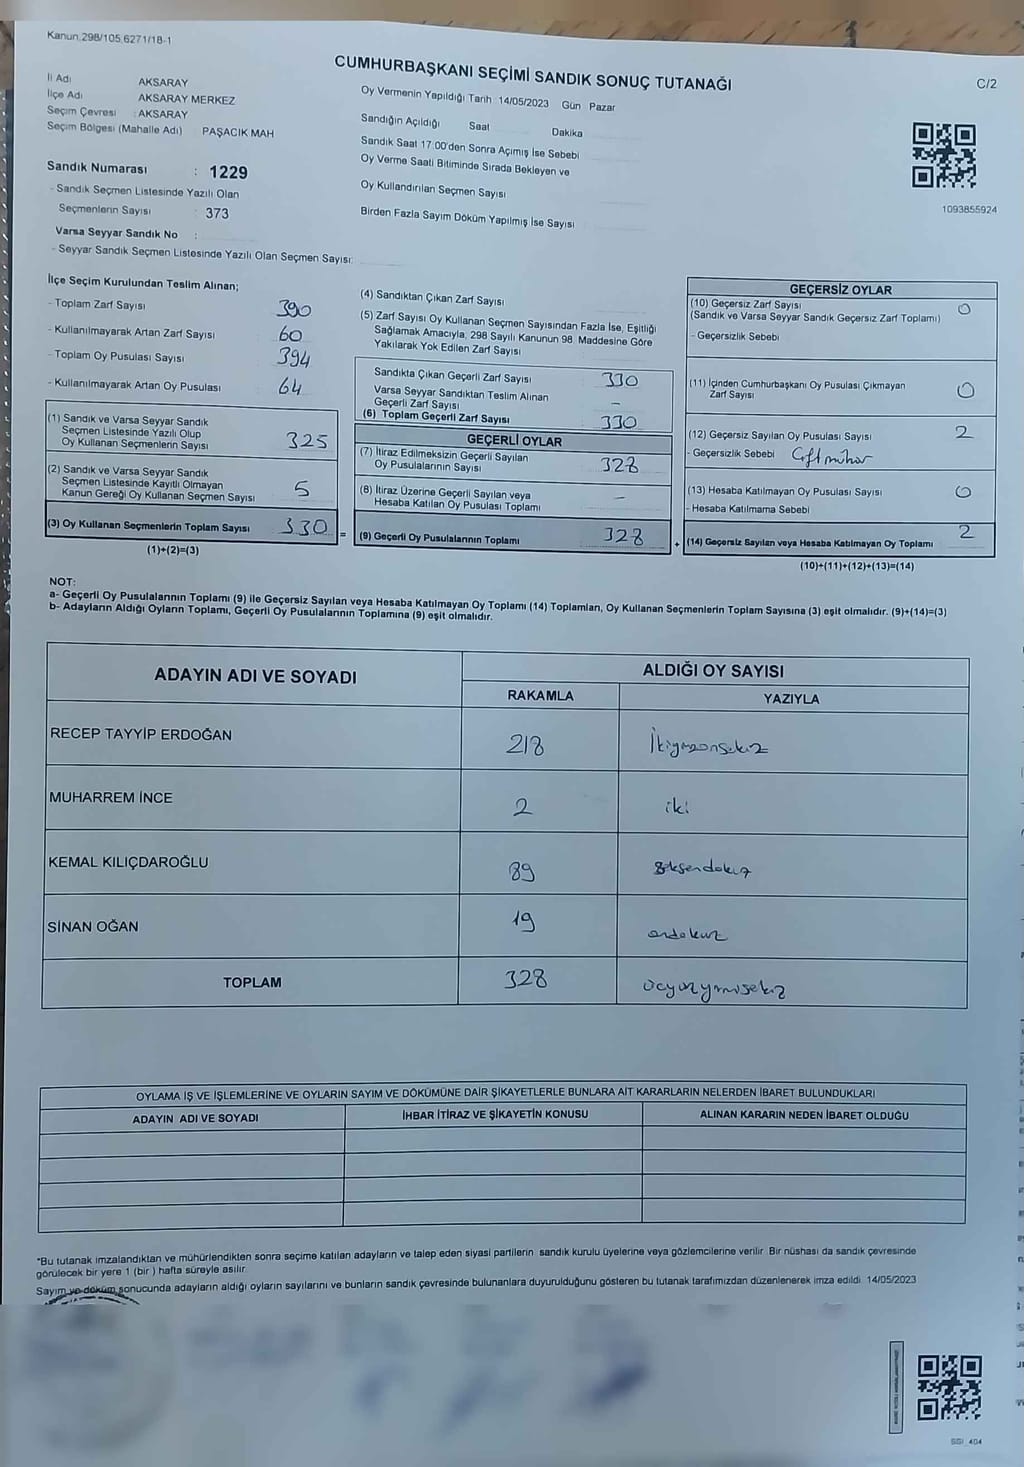 Kanun.298/105,6271/18-1
CUMHURBAŞKANI SEÇİMİ SANDIK SONUÇ TUTANAĞI
C/2
İl Adı AKSARAY
İlçe Adı AKSARAY MERKEZ
Seçim Çevresi : AKSARAY
Seçim Bölgesi (Mahalle Adı) PAŞACIK MAH
Sandık Numarası : 1229
- Sandık Seçmen Listesinde Yazılı Olan
Seçmenlerin Sayısı 373
Varsa Seyyar Sandık No :
- Seyyar Sandık Seçmen Listesinde Yazılı Olan Seçmen Sayısı:
Oy Vermenin Yapıldığı Tarih : 14/05/2023 Gün Pazar
Sandığın Açıldığı Saat Dakika
Sandık Saat 17:00'den Sonra Açımış İse Sebebi
Oy Verme Saati Bitiminde Sırada Bekleyen ve
Oy Kullandırılan Seçmen Sayısı
Birden Fazla Sayım Döküm Yapılmış İse Sayısı
1093855924
İlçe Seçim Kurulundan Teslim Alınan;
- Toplam Zarf Sayısı 390
- Kullanılmayarak Artan Zarf Sayısı 60
- Toplam Oy Pusulası Sayısı 394
- Kullanılmayarak Artan Oy Pusulası 64
(1) Sandık ve Varsa Seyyar Sandık
Seçmen Listesinde Yazılı Olup
Oy Kullanan Seçmenlerin Sayısı 325
(2) Sandık ve Varsa Seyyar Sandık
Seçmen Listesinde Kayıtlı Olmayan
Kanun Gereği Oy Kullanan Seçmen Sayısı 5
(3) Oy Kullanan Seçmenlerin Toplam Sayısı 330 =
(1)+(2)=(3)
(4) Sandıktan Çıkan Zarf Sayısı
(5) Zarf Sayısı Oy Kullanan Seçmen Sayısından Fazla İse, Eşitliği
Sağlamak Amacıyla, 298 Sayılı Kanunun 98. Maddesine Göre
Yakılarak Yok Edilen Zarf Sayısı
Sandıkta Çıkan Geçerli Zarf Sayısı 330
Varsa Seyyar Sandıktan Teslim Alınan
Geçerli Zarf Sayısı -
(6) Toplam Geçerli Zarf Sayısı 330
GEÇERLİ OYLAR
(7) İtiraz Edilmeksizin Geçerli Sayılan
Oy Pusulalarının Sayısı 328
(8) İtiraz Üzerine Geçerli Sayılan veya
Hesaba Katılan Oy Pusulası Toplamı -
(9) Geçerli Oy Pusulalarının Toplamı 328 +
GEÇERSİZ OYLAR
(10) Geçersiz Zarf Sayısı 0
(Sandık ve Varsa Seyyar Sandık Geçersiz Zarf Toplamı)
- Geçersizlik Sebebi
(11) İçinden Cumhurbaşkanı Oy Pusulası Çıkmayan
Zarf Sayısı 0
(12) Geçersiz Sayılan Oy Pusulası Sayısı 2
- Geçersizlik Sebebi Çift mühür
(13) Hesaba Katılmayan Oy Pusulası Sayısı 0
- Hesaba Katılmama Sebebi
(14) Geçersiz Sayılan veya Hesaba Katılmayan Oy Toplamı 2
(10)+(11)+(12)+(13)=(14)
NOT:
a- Geçerli Oy Pusulalarının Toplamı (9) ile Geçersiz Sayılan veya Hesaba Katılmayan Oy Toplamı (14) Toplamları, Oy Kullanan Seçmenlerin Toplam Sayısına (3) eşit olmalıdır. (9)+(14)=(3)
b- Adayların Aldığı Oyların Toplamı, Geçerli Oy Pusulalarının Toplamına (9) eşit olmalıdır.
ADAYIN ADI VE SOYADI ALDIĞI OY SAYISI
RAKAMLA YAZIYLA
RECEP TAYYİP ERDOĞAN 218 İkiyüzonsekiz
MUHARREM İNCE 2 iki
KEMAL KILIÇDAROĞLU 89 seksendokuz
SİNAN OĞAN 19 ondokuz
TOPLAM 328 üçyüzyirmisekiz
OYLAMA İŞ VE İŞLEMLERİNE VE OYLARIN SAYIM VE DÖKÜMÜNE DAİR ŞİKAYETLERLE BUNLARA AİT KARARLARIN NELERDEN İBARET BULUNDUKLARI
ADAYIN ADI VE SOYADI İHBAR İTİRAZ VE ŞİKAYETİN KONUSU ALINAN KARARIN NEDEN İBARET OLDUĞU
*Bu tutanak imzalandıktan ve mühürlendikten sonra seçime katılan adayların ve talep eden siyasi partilerin sandık kurulu üyelerine veya gözlemcilerine verilir. Bir nüshası da sandık çevresinde
görülecek bir yere 1 (bir ) hafta süreyle asılır.
Sayım ve döküm sonucunda adayların aldığı oyların sayılarını ve bunların sandık çevresinde bulunanlara duyurulduğunu gösteren bu tutanak tarafımızdan düzenlenerek imza edildi. 14/05/2023
SGI_404